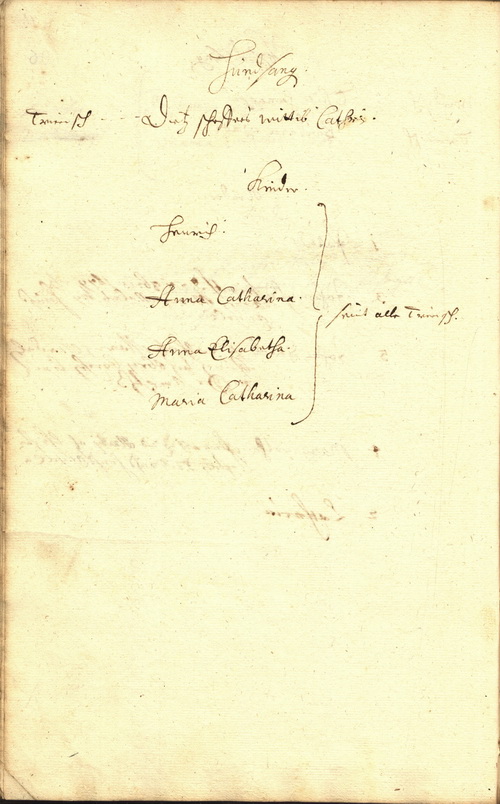 Hundsang.
Trierisch - - - Dietz scheffers wittib Cathrin.
Kinder.
Henrich.
Anna Catharina.
Anna Elisabetha.
Maria Catharina
seint alle Trierisch.